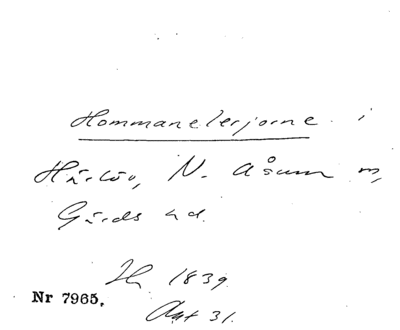 Hommanelerjorne i
Härlöv, N. Åsum m,
Gärds hd.
H 1839
Nr 7965,
Akt 31.